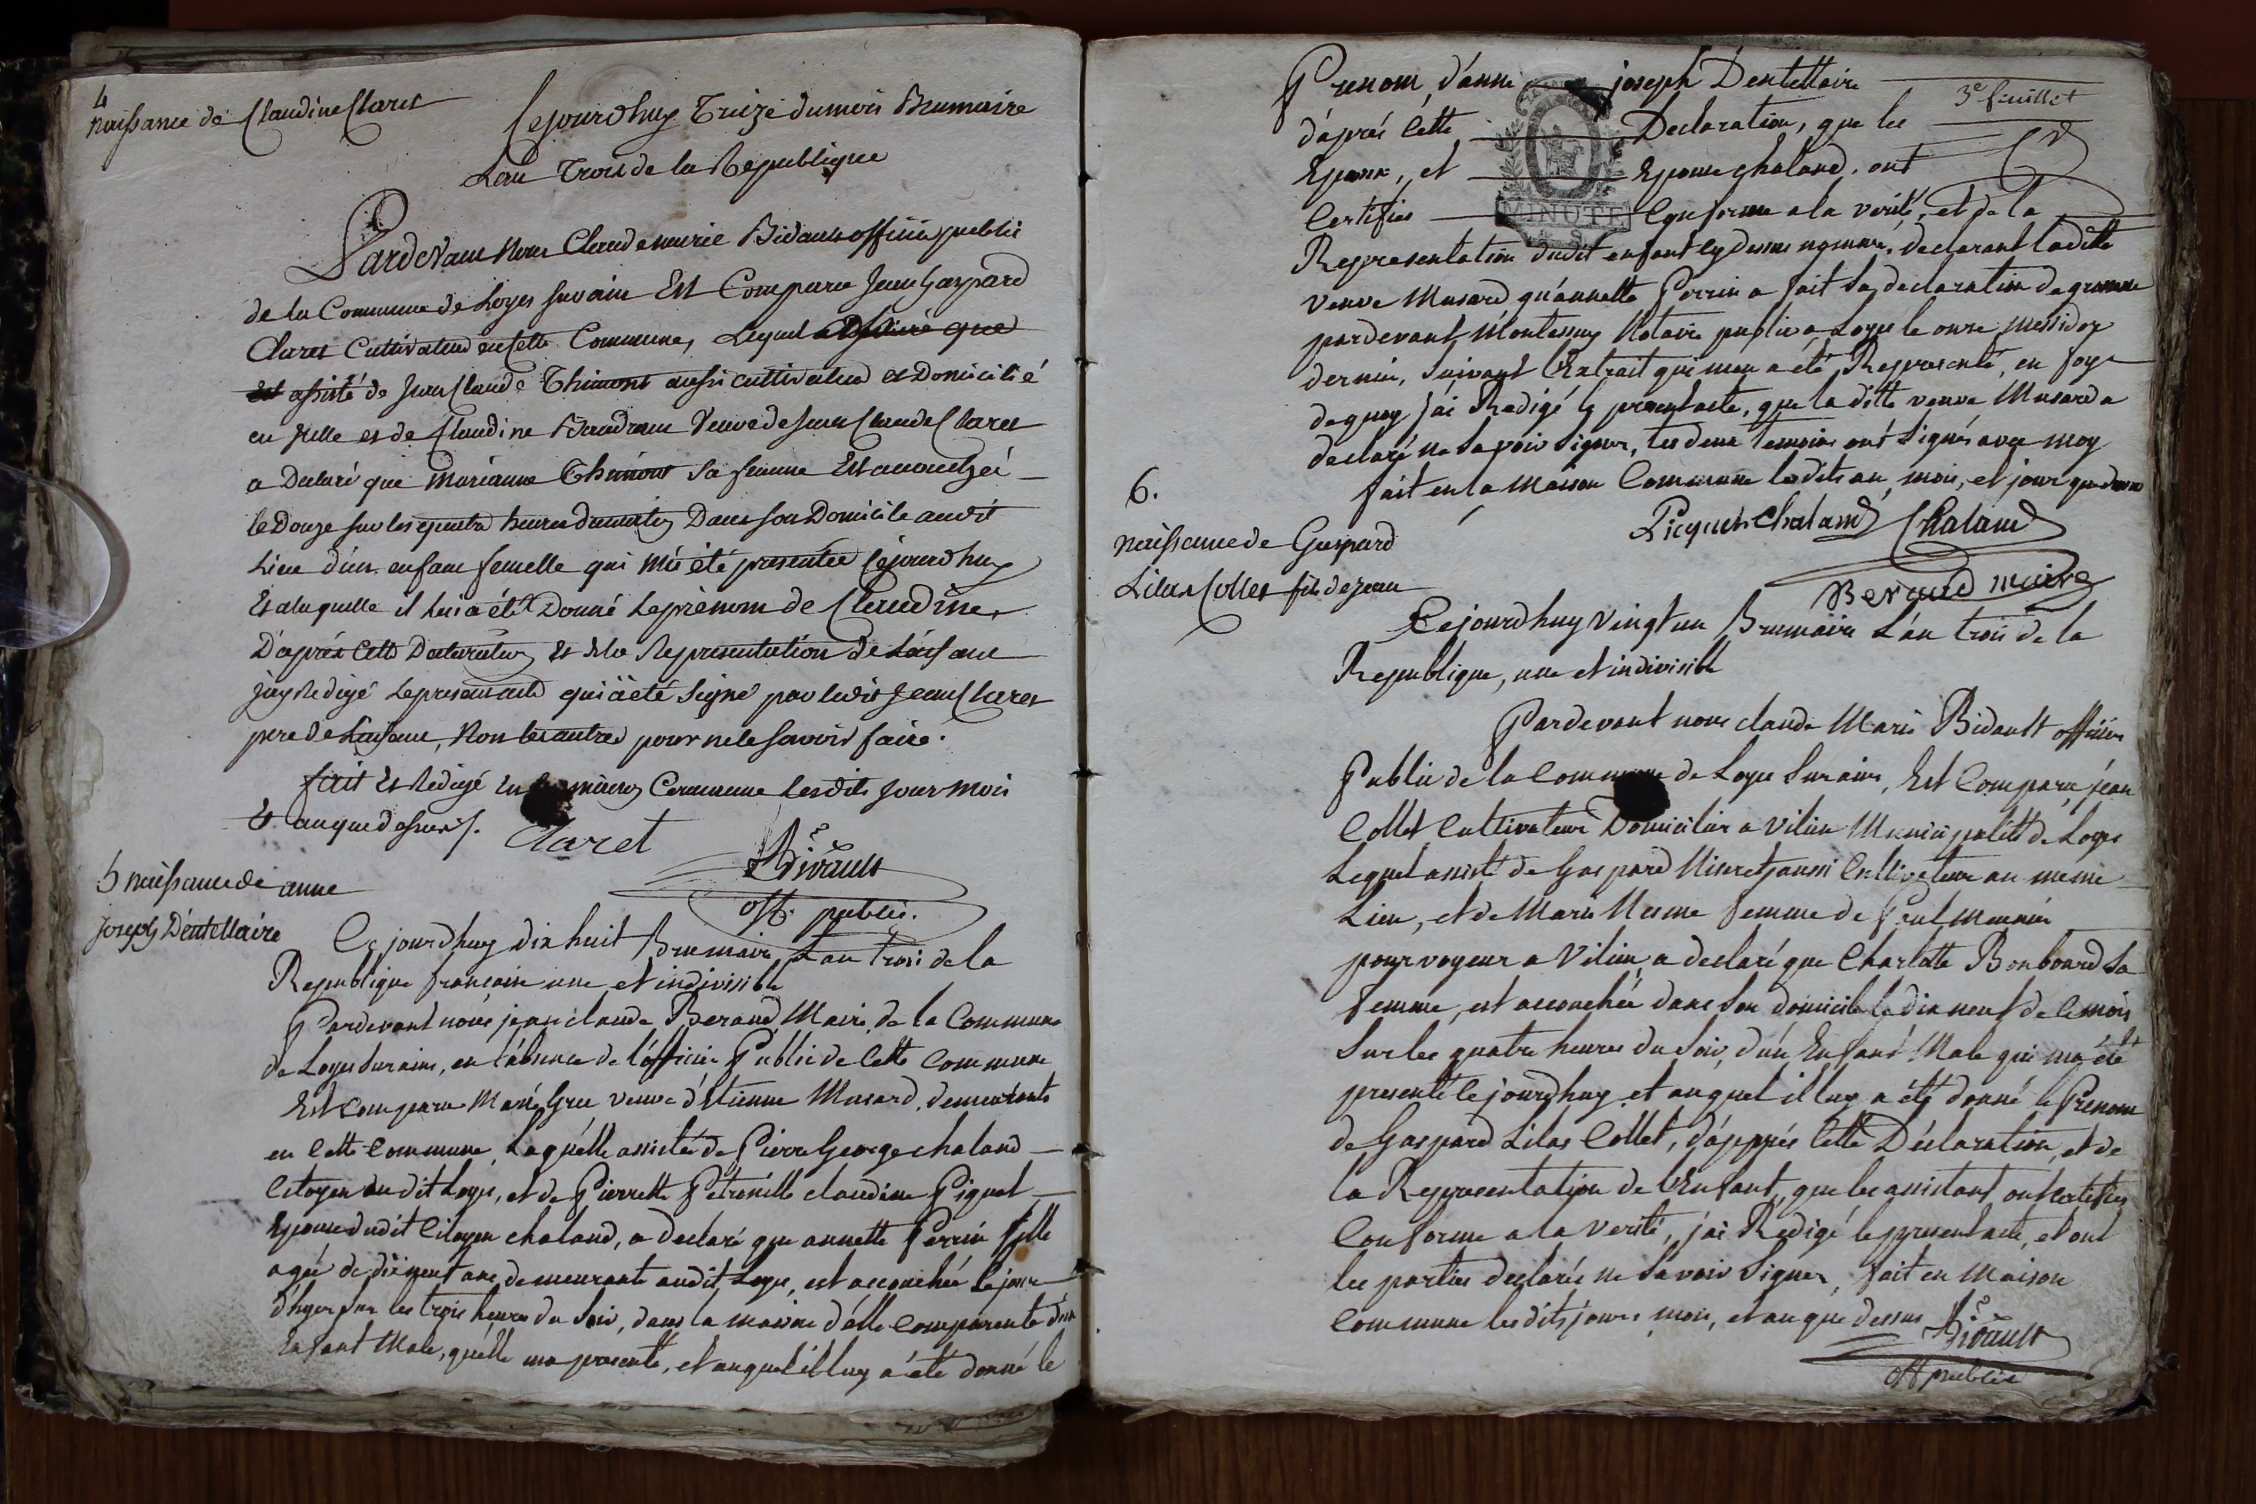 4
naissance de Claudine Claret
Cejourdhuy Treize du mois Brumaire
Lan Trois de la Republique
Pardevant Nous Claude marie Bidault officier public
de la Commune de Loyes sur ain Est Comparu Jean Gaspard
Claret Cultivateur en cette Commune, Lequel a déclaré que
Est assisté de Jean Claude Thimont aussi cultivateur et Domicilié
en icelle et de Claudine Baudran Veuve de Jean Claude Claret
a Declaré que Marianne Thimont sa femme Est accouchée
le Douze sur les quatre heures du matin Dans son Domicile audit
Lieu d'un enfant femelle qui m'a été presentée Cejourdhuy
Et a laquelle il lui a été Donné Le prènom de Claudine,
D'après Cette Declaration Et de la Representation de L'enfant
j'ay Redigé Le present acte qui a été Signé par ledit Jean Claret
pere de L'enfant, Non les autres pour ne le Savoir faire.
fait Et Redigé En maison Commune Lesdits Jour mois
Et an que dessus /.
Claret
Bidault
off. public.
5 naissance de anne
Joseph Dentellaire
Ce jourdhuy dix huit Brumaire, L'an trois de la
Republique françaisse une et indivisible
Pardevant nous jean claude Beraud Maire de la Commune
de Loyes sur ain, en l'absence de l'officier Public de cette Commune
Est Comparue Marie Gree veuve d'étienne Musard, demeurante
en Cette Commune, Laquelle assistée de Pierre George chaland
Citoyen du dit Loyes, et de Pierrette Petronille claudine Piquet
Epouse dudit Citoyen chaland, a declaré que annette Perrin fille
agée de dix neuf ans, demeurante audit Loyes, est accouchée le jour
d'hyer sur les trois heures du soir, dans la maison d'elle Comparente d'un
Enfant Male, quelle m'a presenté, et auquel il luy a été donné le
Prenom, d'anne joseph Dentellaire
3e feuillet
d'après Cette Declaration, que les
Epoux, et Epouse chaland, ont
Certifiée Conforme a la verité, et de la
MINUTE
Representation dudit enfant cy dessus nommé, declarant ladite
veuve Musard qu'annette Perrin a fait sa declaration de grossesse
pardevant Montessuy Notaire public a Loyes le onze messidor
dernier, suivant l'Extrait qui m'en a été Representé, en foy
de quoy j'ai Redigé le present acte, que la ditte veuve Musard a
declaré ne Savoir Signer, les deux temoins ont signés avec moy
fait en la Maison Commune lesdits an, mois, et jour que dessus
Picquet Chaland Chaland
Beraud maire
6.
naissance de Gaspard
Lilas Collet fils de Jean
Cejourdhuy Vingt un Brumaire L'an trois de la
Republique, une et indivisible
Pardevant nous claude Marie Bidault officier
Public de la Commune de Loyes sur ain, Est Comparu jean
Collet Cultivateur Domicilier a Vilieu Municipalité de Loyes
Lequel assisté de Gaspard aussi Cultivateur au meme
Lieu, et de Marie Mesme femme de Paul Meunier
pourvoyeur a Vilieu, a declaré que Charlotte Bonboard sa
femme, est accouchée dans son domicile le dix neuf de ce mois
sur les quatre heures du soir, d'un Enfant Male qui m'a été
presenté cejourdhuy, et auquel il luy a été donné le Prenom
de Gaspard Lilas Collet, d'apprés Cette Déclaration, et de
la Representation de l'Enfant, que les assistant ont certifiée
Conforme a la verité, j'ai Redigé le present acte, et ont
les parties declarés ne Savoir Signer, fait en Maison
Commune lesdits jours mois, et an que dessus
Bidault
off public